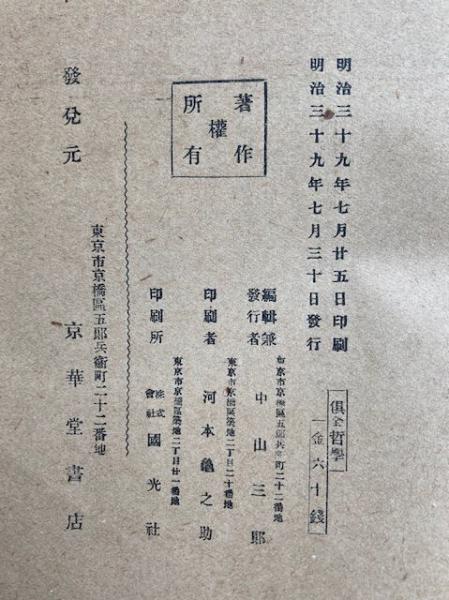 明治三十九年七月廿五日印刷
明治三十九年七月三十日發行
倶全哲學
金六十錢
著作權所有
東京市京橋區五郎兵衞町二十二番地
編輯兼發行者 中山三郎
東京市京橋區築地二丁目二十番地
印刷者 河本龜之助
東京市京橋區築地二丁目廿一番地
印刷所 株式會社 國光社
東京市京橋區五郎兵衞町二十二番地
發兌元 京華堂書店